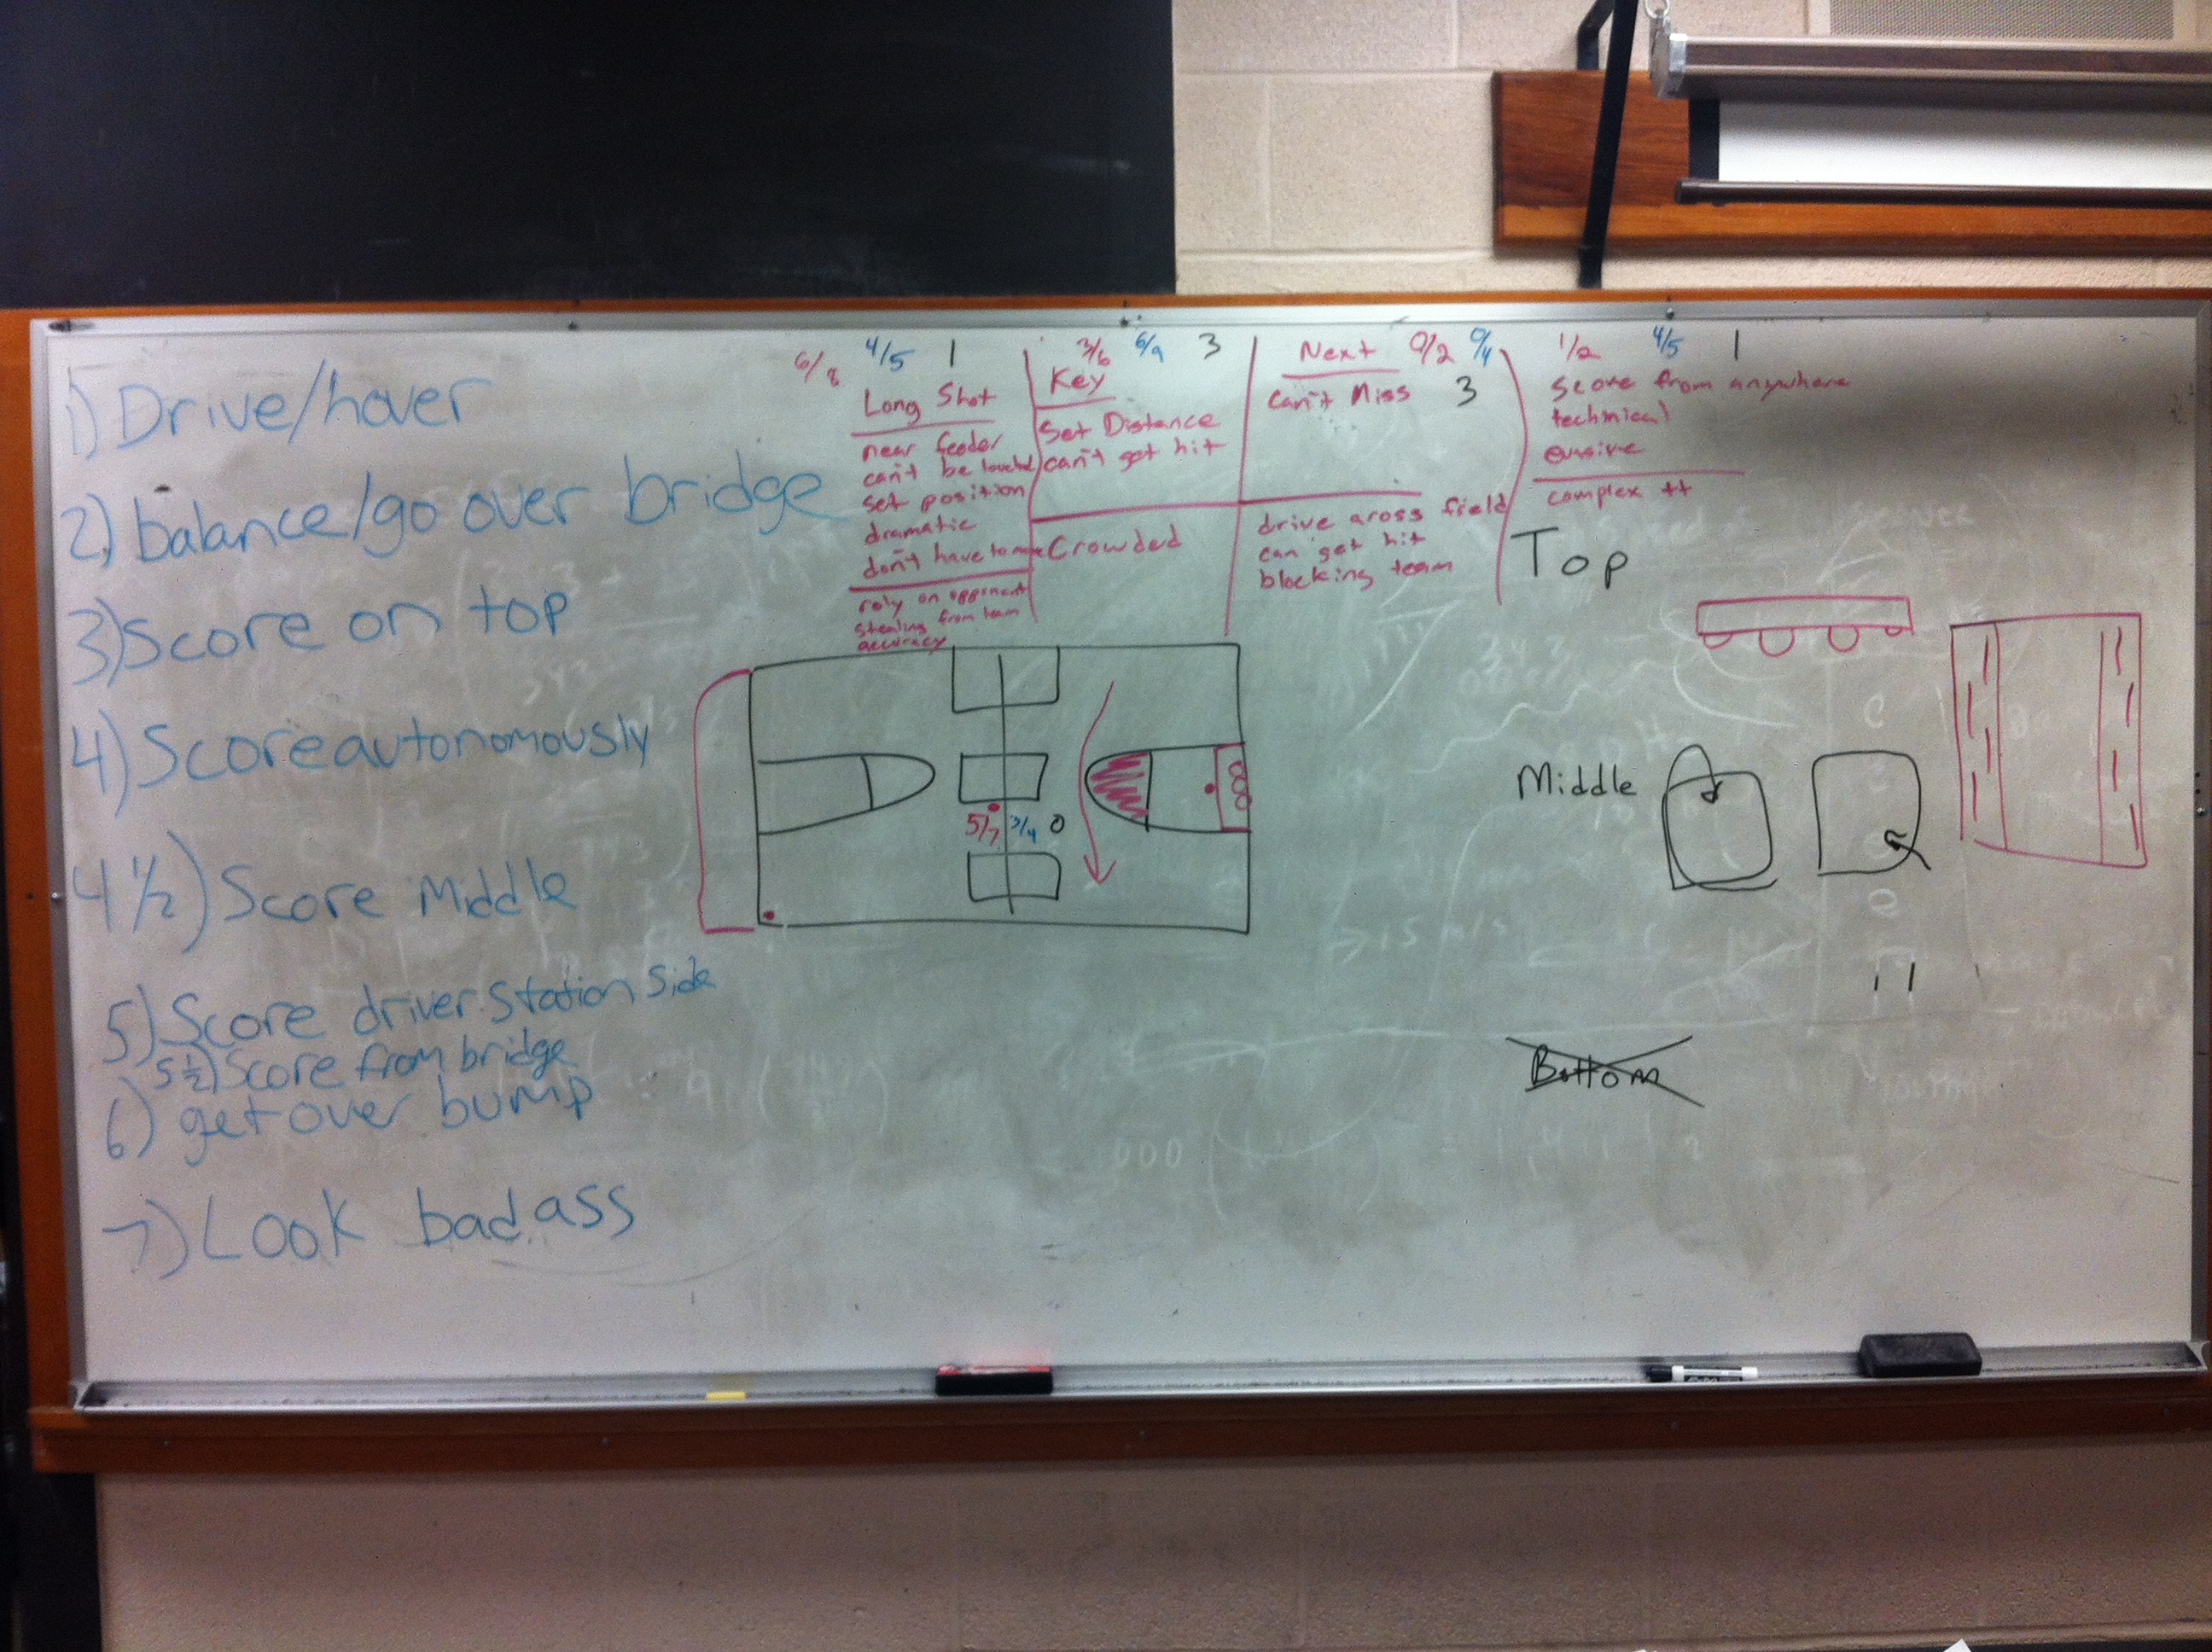 1) Drive/hover
2) balance/go over bridge
3) Score on top
4) Score autonomously
4 1/2) Score Middle
5) Score driver station side
5 1/2) Score from bridge
6) get over bump
7) Look badass
6/8 4/5 1
Long Shot
near feeder
can't be touched
set position
dramatic
don't have to move
rely on opponent
stealing from team
accuracy
3/6 6/9 3
Key
Set Distance
can't get hit
Crowded
Next 0/2 0/4
Can't Miss 3
drive aross field
can get hit
blocking team
1/2 4/5 1
Score from anywhere
technical
complex ++
5/7 3/4 0
Top
Middle
Bottom